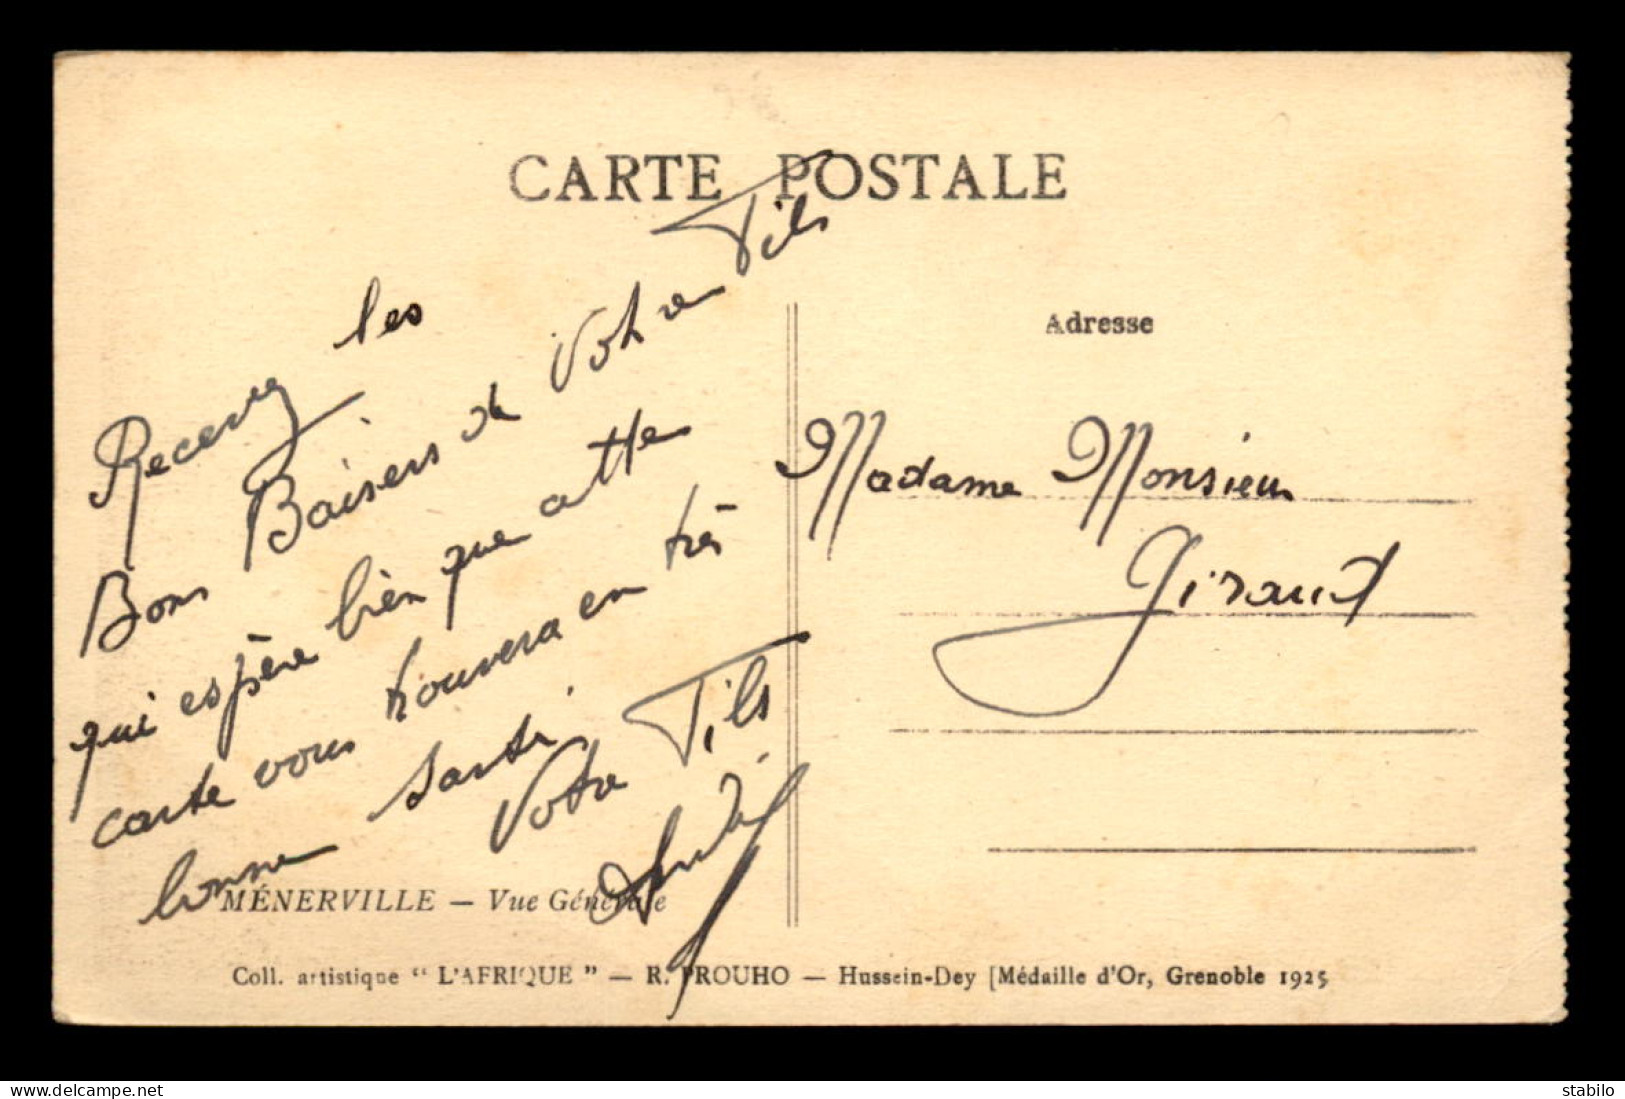 CARTE POSTALE
Recevez les
Bons Baisers de Votre Fils
qui espère bien que cette
carte vous trouvera en très
bonne santé.
Votre Fils
André
Adresse
Madame Monsieur
Giraud
MÉNERVILLE — Vue Générale
Coll. artistique “ L'AFRIQUE ” — R. PROUHO — Hussein-Dey [Médaille d'Or, Grenoble 1925
stabilo